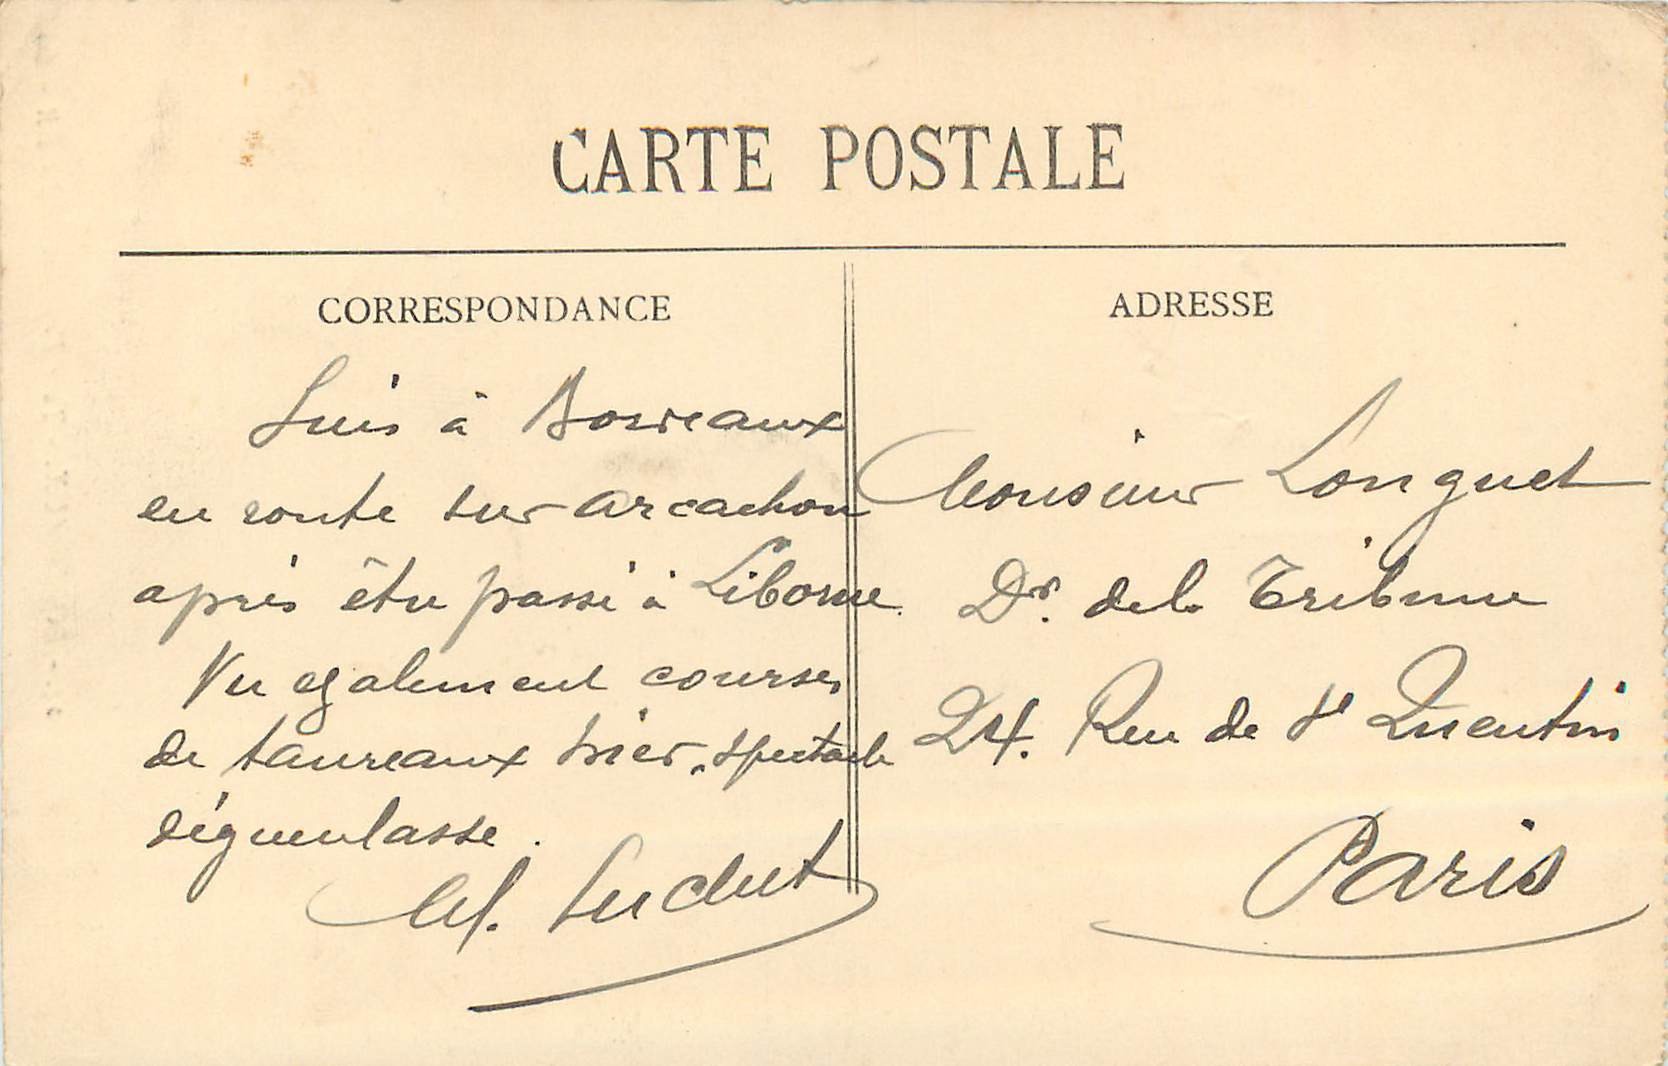 CARTE POSTALE
CORRESPONDANCE
Suis à Bordeaux
en route sur Arcachon
après être passé à Libourne.
Vu egalement courses
de taureaux hier, spectacle
dégueulasse.
ADRESSE
Monsieur Longuet
Dr. de la Tribune
24. Rue de St Quentin
Paris